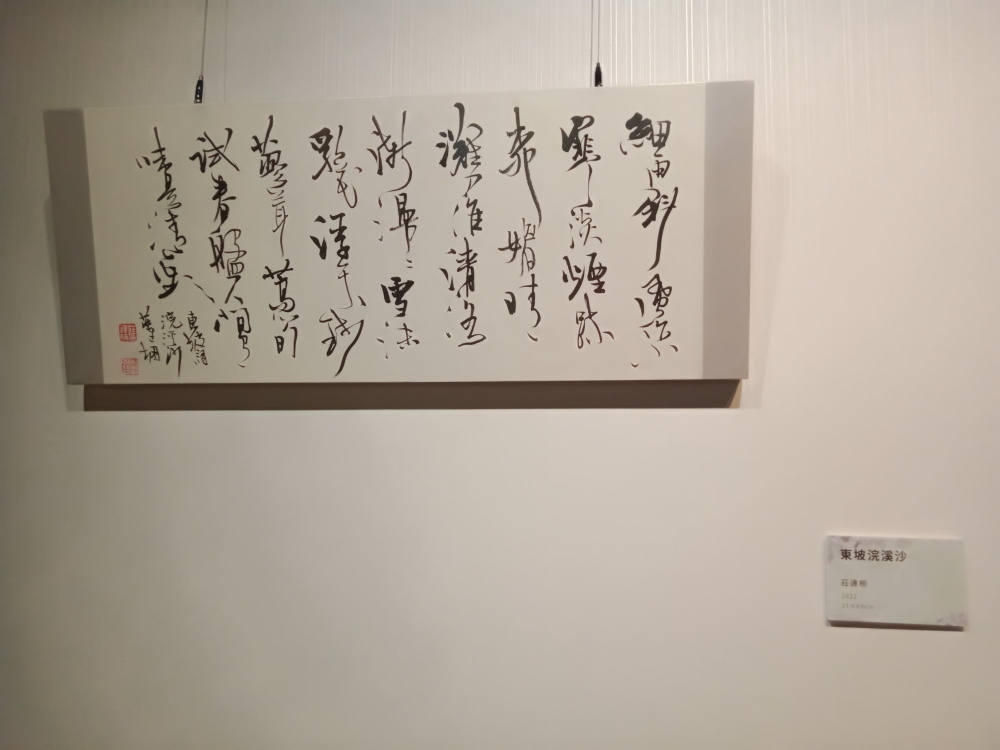 細雨斜風作曉
寒淡煙疎
柳媚晴
灘入淮清洛
漸漫漫雪沫
乳花浮午盞
蓼茸蒿筍
試春盤人間有
味是清歡
東坡詞
浣溪沙
東坡浣溪沙
2022